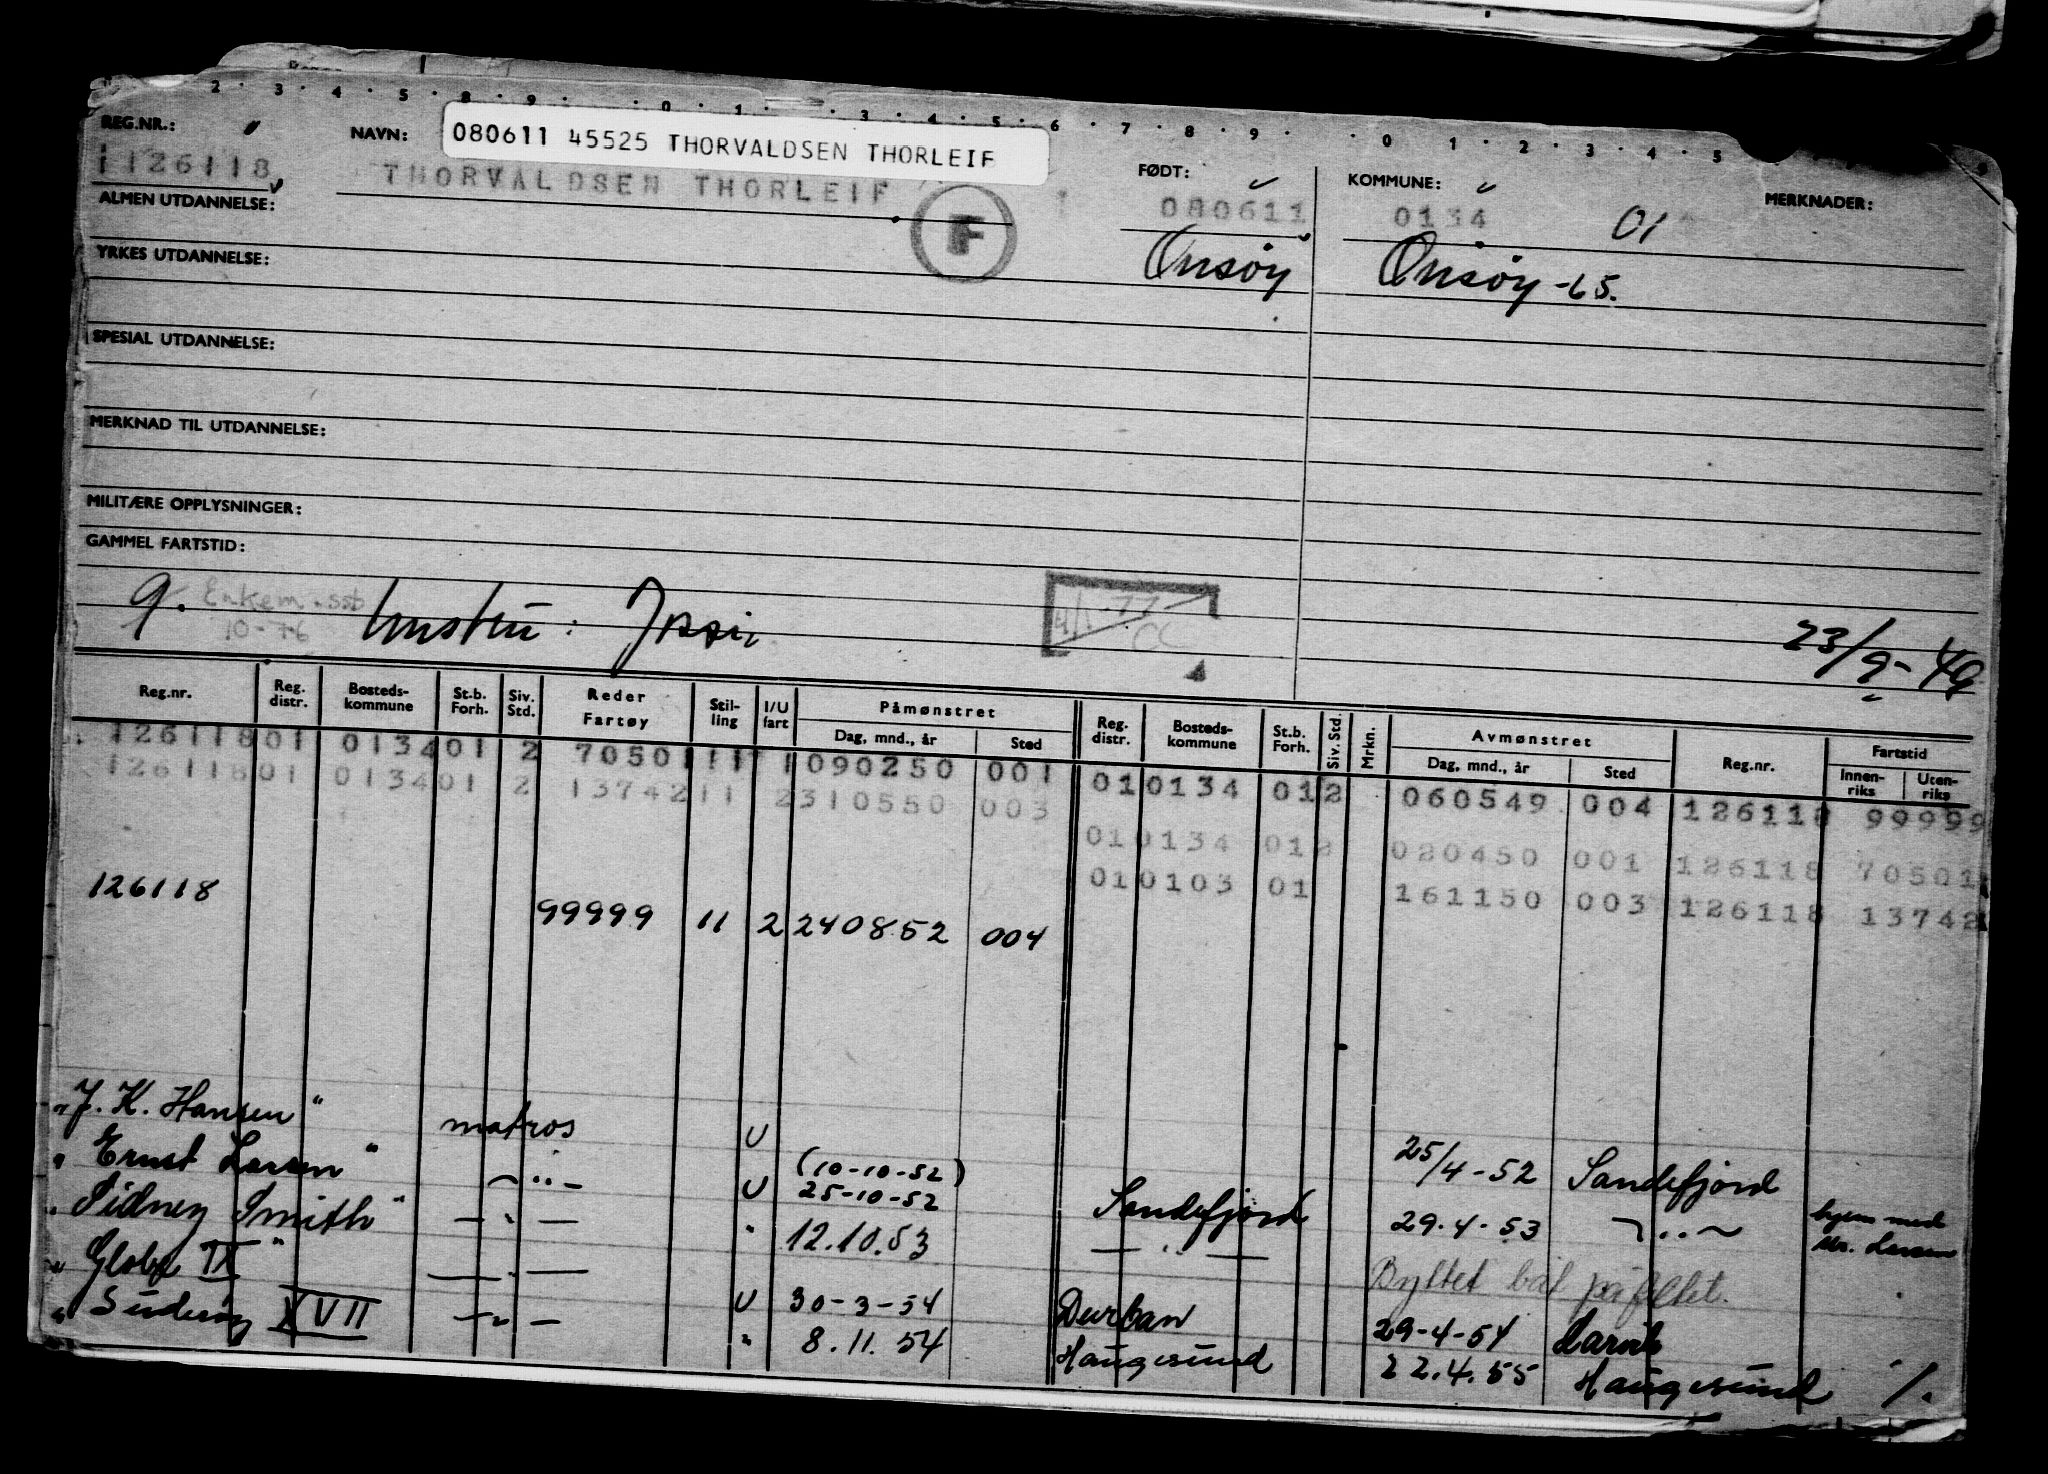 REG.NR.: NAVN: 080611 45525 THORVALDSEN THORLEIF
126118 THORVALDSEN THORLEIF
F
FØDT: 080611
KOMMUNE: 0134 01
MERKNADER:
Onsøy Onsøy -65.
ALMEN UTDANNELSE:
YRKES UTDANNELSE:
SPESIAL UTDANNELSE:
MERKNAD TIL UTDANNELSE:
MILITÆRE OPPLYSNINGER:
GAMMEL FARTSTID:
g. 10-76
23/9-49
Reg.nr. Reg. distr. Bosteds-kommune St.b. Forh. Siv. Std. Reder Fartøy Stil-ling I/U fart Påmønstret Dag, mnd., år Sted Reg. distr. Bosteds-kommune St.b. Forh. Siv. Std. Mrkn. Avmønstret Dag, mnd., år Sted Reg.nr. Fartstid Innen-riks Uten-riks
126118 01 0134 01 2 70501 11 1 090250 001
01 0134 01 2 060549 004 126118 99999
126118 01 0134 01 2 13742 11 2 310550 003
01 0134 01 2 020450 001 126118 70501
01 0103 01 161150 003 126118 13742
126118 99999 11 2 240852 004
"J. K. Hansen" matros U 25/4-52 Sandefjord
"Ernst Larsen" -"- U (10-10-52) 25-10-52 Sandefjord 29.4-53 -"- hjem med
"Sidney Smith" -"- " 12.10.53 -"- Byttet båt på feltet.
"Globe IX" -"- U 30-3-54 Durban 29-4-54 Larvik
"Suderøy XVII -"- " 8.11.54 Haugesund 22.4.55 Haugesund /.